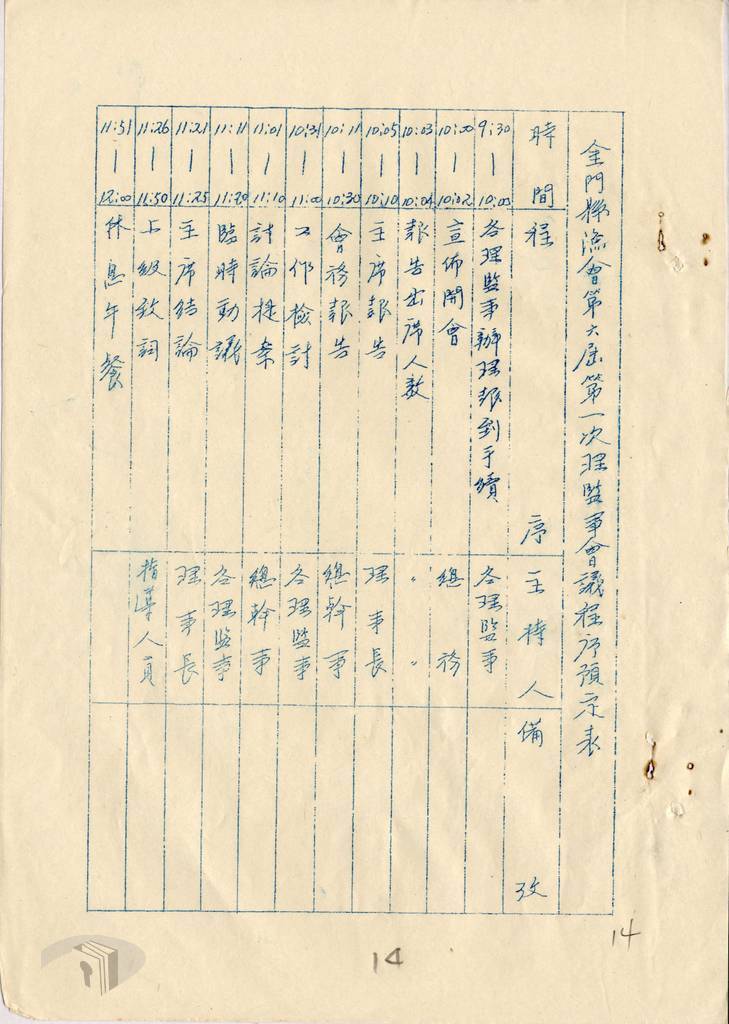 金門縣漁會第六屆第一次理監事會議程序預定表
時間 程序 主持人 備攷
9:30—10:00 各理監事辦理報到手續 各理監事
10:00—10:02 宣佈開會 總務
10:03—10:04 報告出席人數 〃 〃
10:05—10:10 主席報告 理事長
10:11—10:30 會務報告 總幹事
10:31—11:00 工作檢討 各理監事
11:01—11:10 討論提案 總幹事
11:11—11:20 臨時動議 各理監事
11:21—11:25 主席結論 理事長
11:26—11:50 上級致詞 指導人員
11:51—12:00 休息午餐
14
14